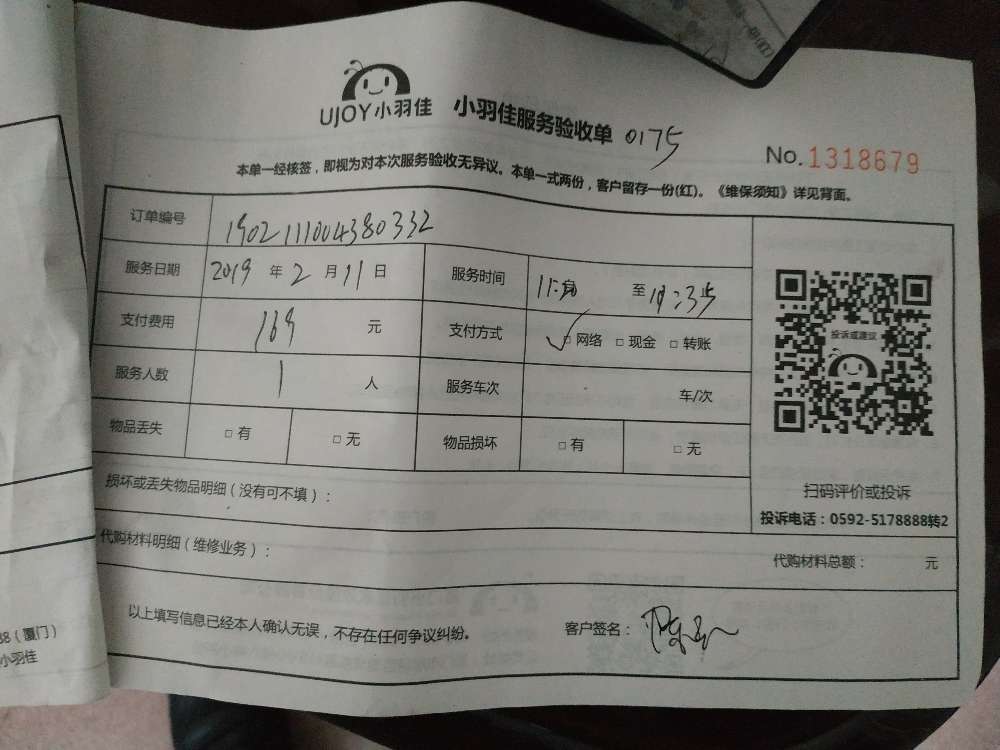 UJOY小羽佳 小羽佳服务验收单 0175
No.1318679
本单一经核签，即视为对本次服务验收无异议。本单一式两份，客户留存一份(红)。《维保须知》详见背面。
订单编号 1902111004380332
服务日期 2019 年 2 月 11 日 服务时间 至
支付费用 169 元 支付方式 □ 网络 □ 现金 □ 转账
服务人数 1 人 服务车次 车/次
物品丢失 □ 有 □ 无 物品损坏 □ 有 □ 无
投诉或建议
扫码评价或投诉
投诉电话：0592-5178888转2
损坏或丢失物品明细（没有可不填）：
代购材料明细（维修业务）： 代购材料总额： 元
以上填写信息已经本人确认无误，不存在任何争议纠纷。 客户签名：
88（厦门）
小羽佳